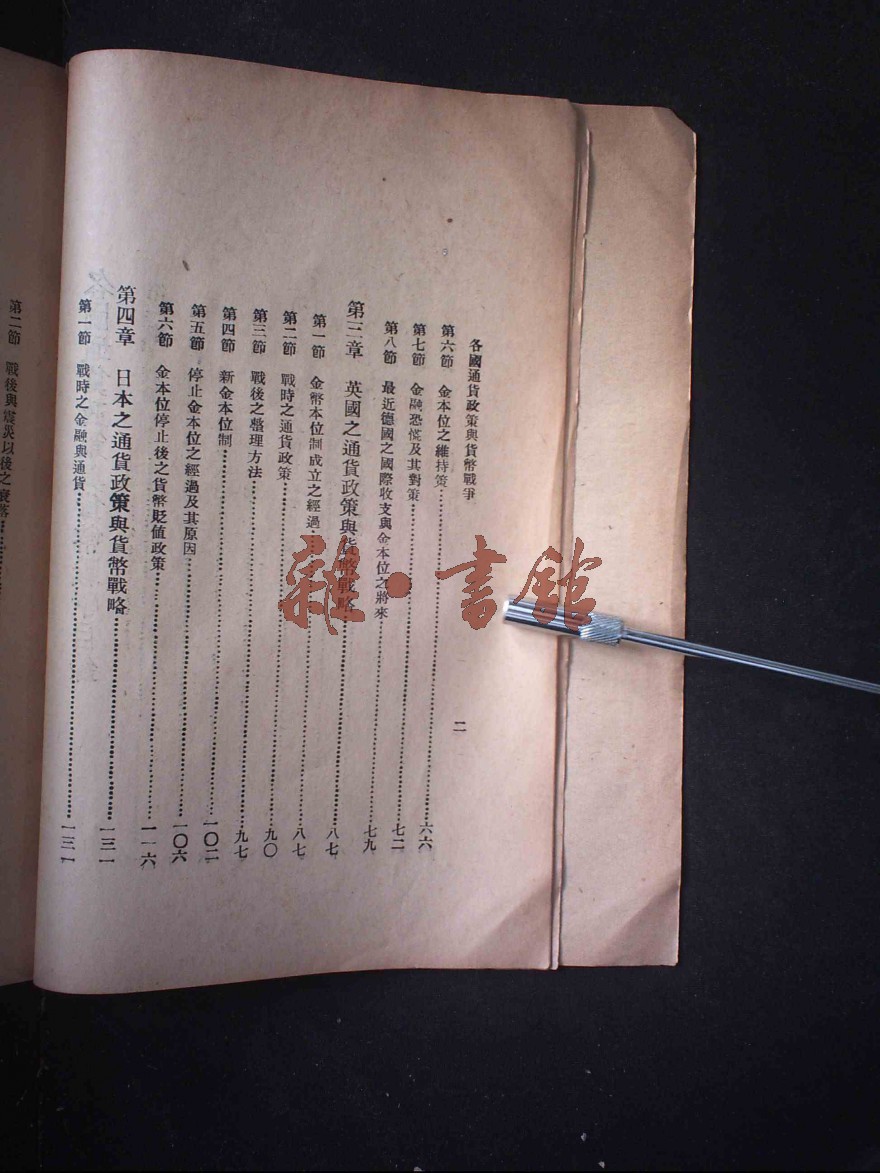 各國通貨政策與貨幣戰爭
二
第六節 金本位之維持策……六六
第七節 金融恐慌及其對策……七二
第八節 最近德國之國際收支與金本位之將來……七九
第三章 英國之通貨政策與貨幣戰略……八七
第一節 金幣本位制成立之經過……八七
第二節 戰時之通貨政策……九〇
第三節 戰後之整理方法……九七
第四節 新金本位制……一〇二
第五節 停止金本位之經過及其原因……一〇六
第六節 金本位停止後之貨幣貶値政策……一一六
第四章 日本之通貨政策與貨幣戰略……一三一
第一節 戰時之金融與通貨……一三一
第二節 戰後與震災以後之衰落……
雜·書館